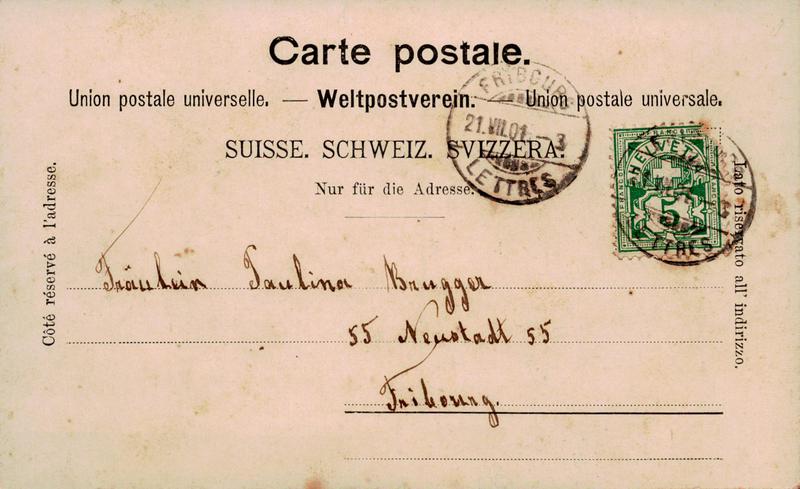 Carte postale.
Union postale universelle. — Weltpostverein. — Union postale universale.
SUISSE. SCHWEIZ. SVIZZERA.
Nur für die Adresse.
Côté réservé à l'adresse.
Lato riservato all' indirizzo.
FRIBOURG
21.VII.01.-3
LETTRES
HELVETIA
5
TTRES
Fräulein Paulina Brugger
55 Neustadt 55
Fribourg.